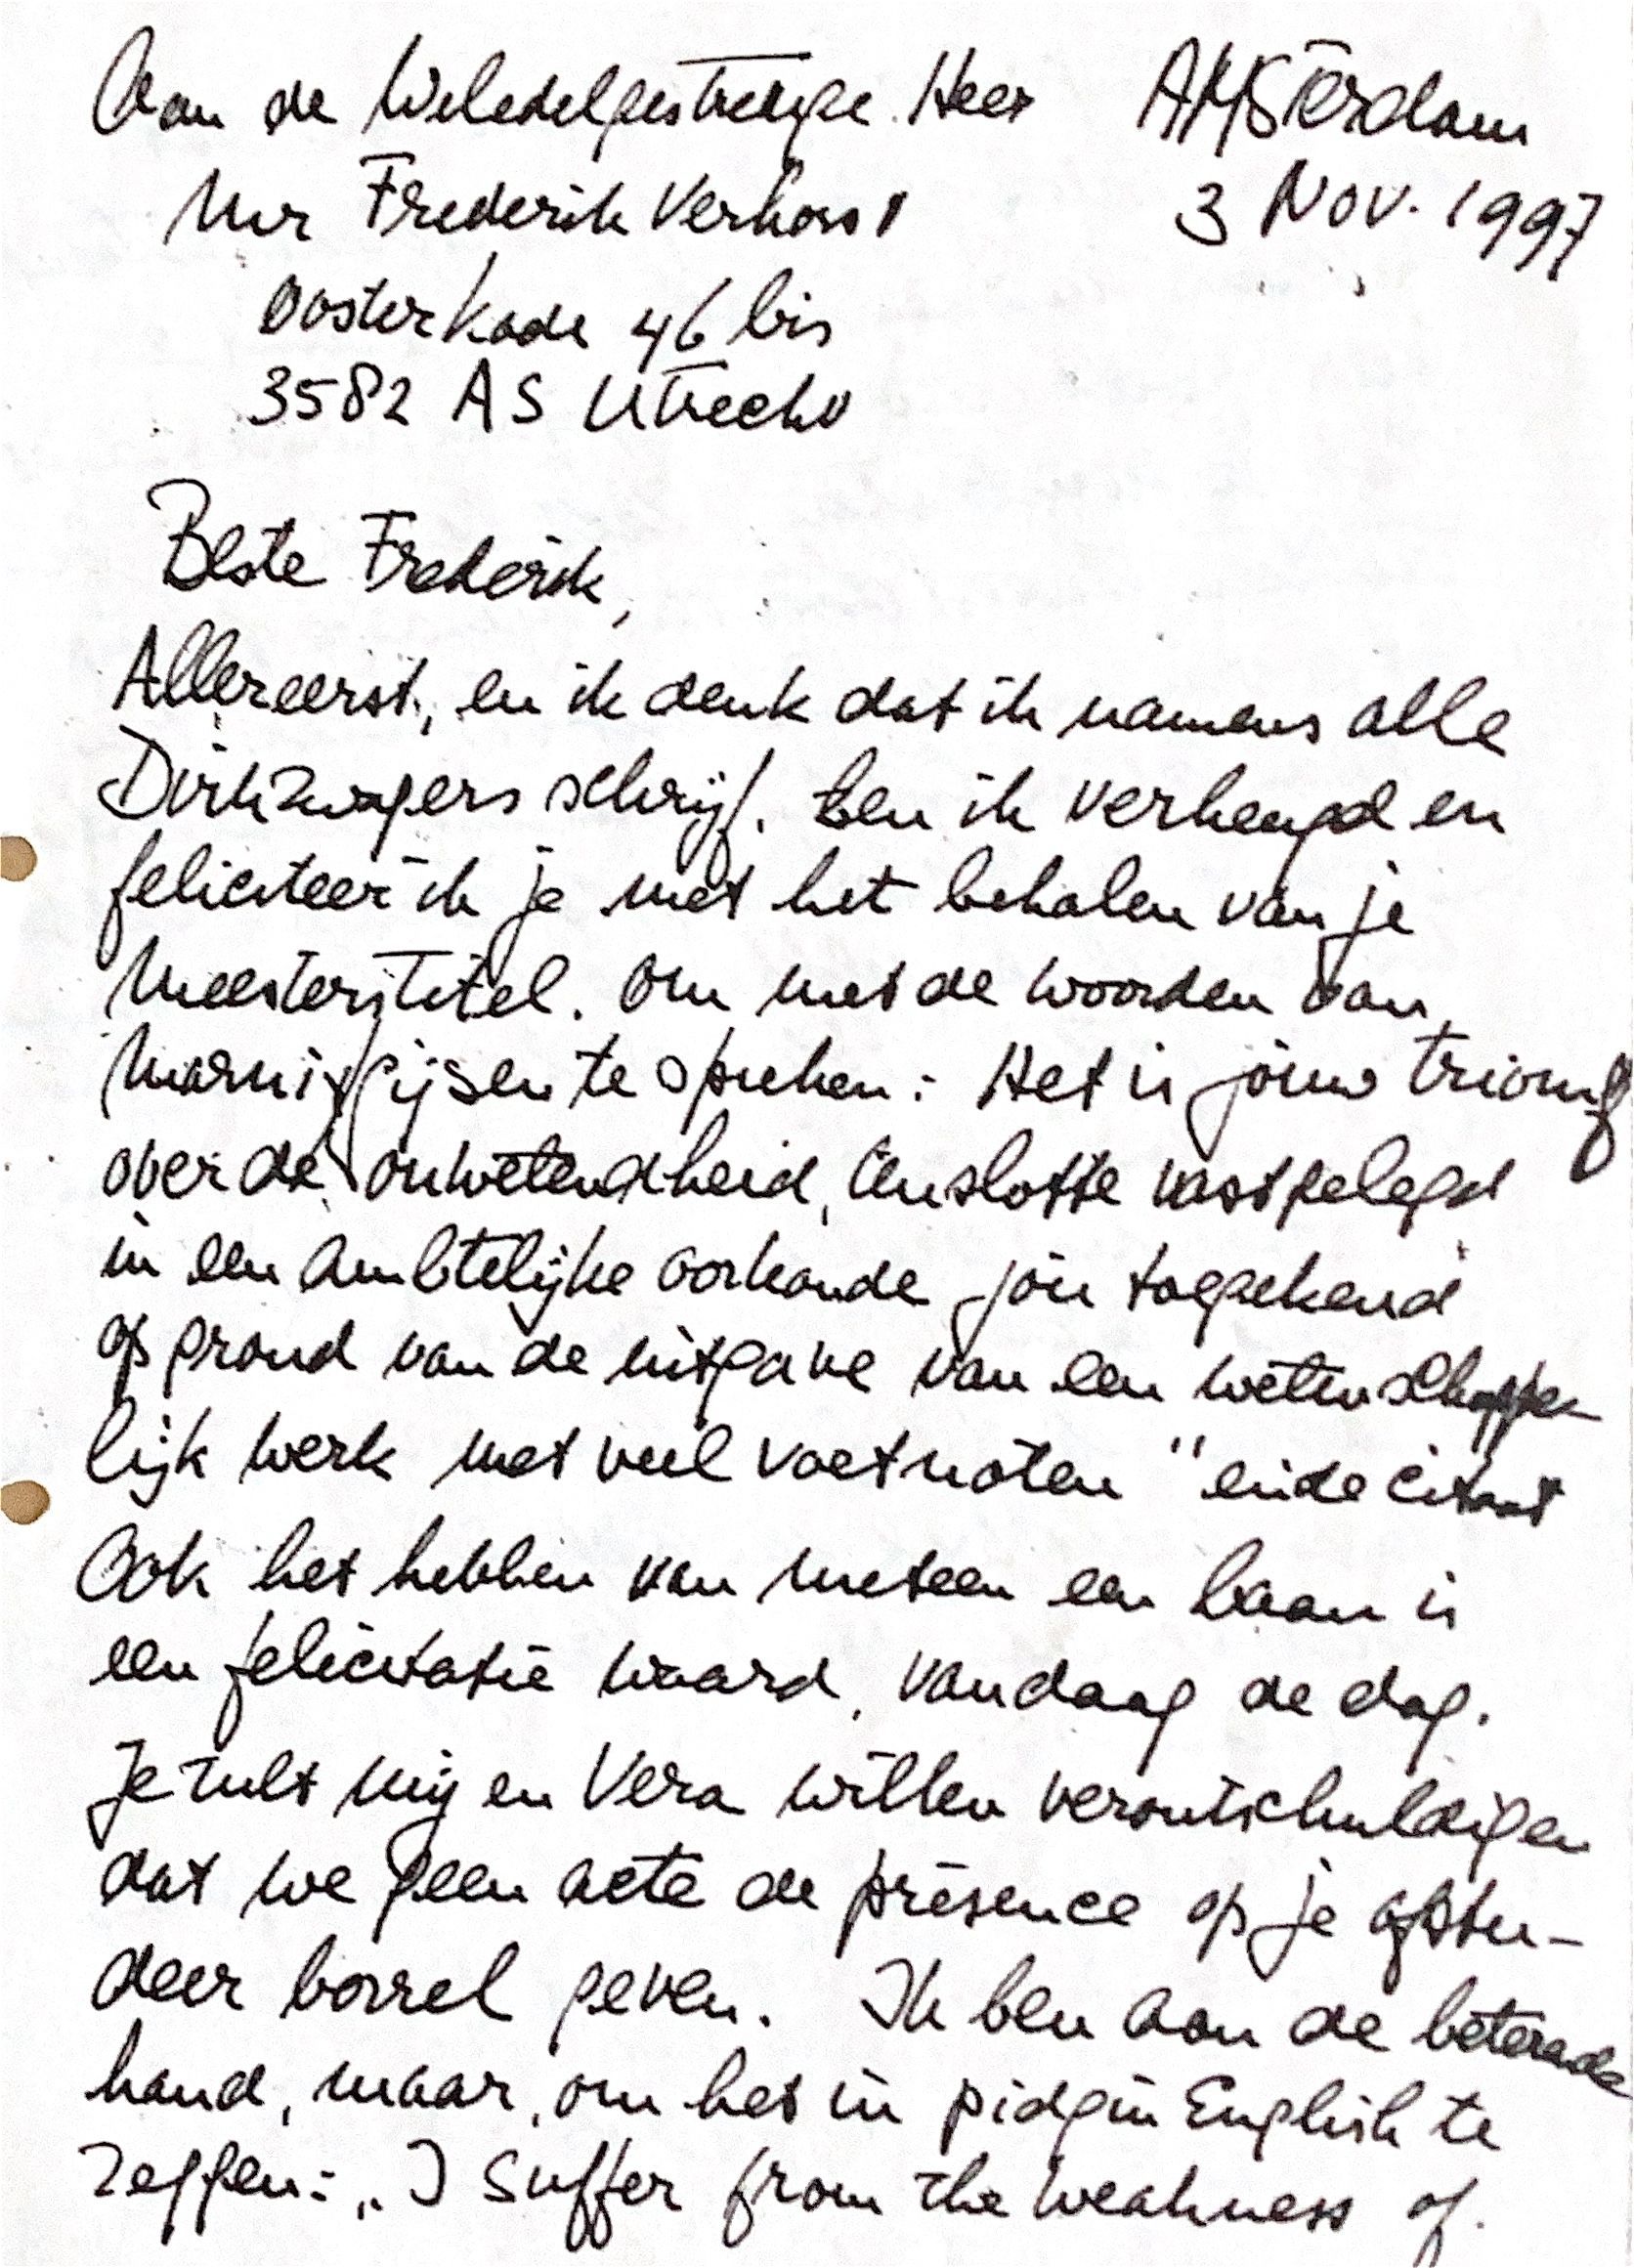 Aan de Weledelgestrenge Heer
AMSTERdam
Mr Frederik Verhorst
3 Nov. 1997
Oosterkade 46 bis
3582 AS Utrecht
Beste Frederik,
Allereerst, en ik denk dat ik namens alle
Dirkzwagers schrijf. ben ik verheugd en
feliciteer ik je met het behalen van je
Meesterstitel. Om met de woorden van
Marnix Gijsen te spreken: Het is jouw triomf
over de onwetendheid, tenslotte vastgelegd
in een ambtelijke oorkonde jou toegekend
op grond van de uitgave van een wetenschappe-
lijk werk met veel voetnoten" einde citaat
Ook het hebben van meteen een baan is
een felicitatie waard, vandaag de dag.
Je zult mij en Vera willen verontschuldigen
dat we geen acte de présence op je afstu-
deer borrel geven. Ik ben aan de beterende
hand, maar, om het in pidgin English te
zeggen: „I suffer from the weakness of